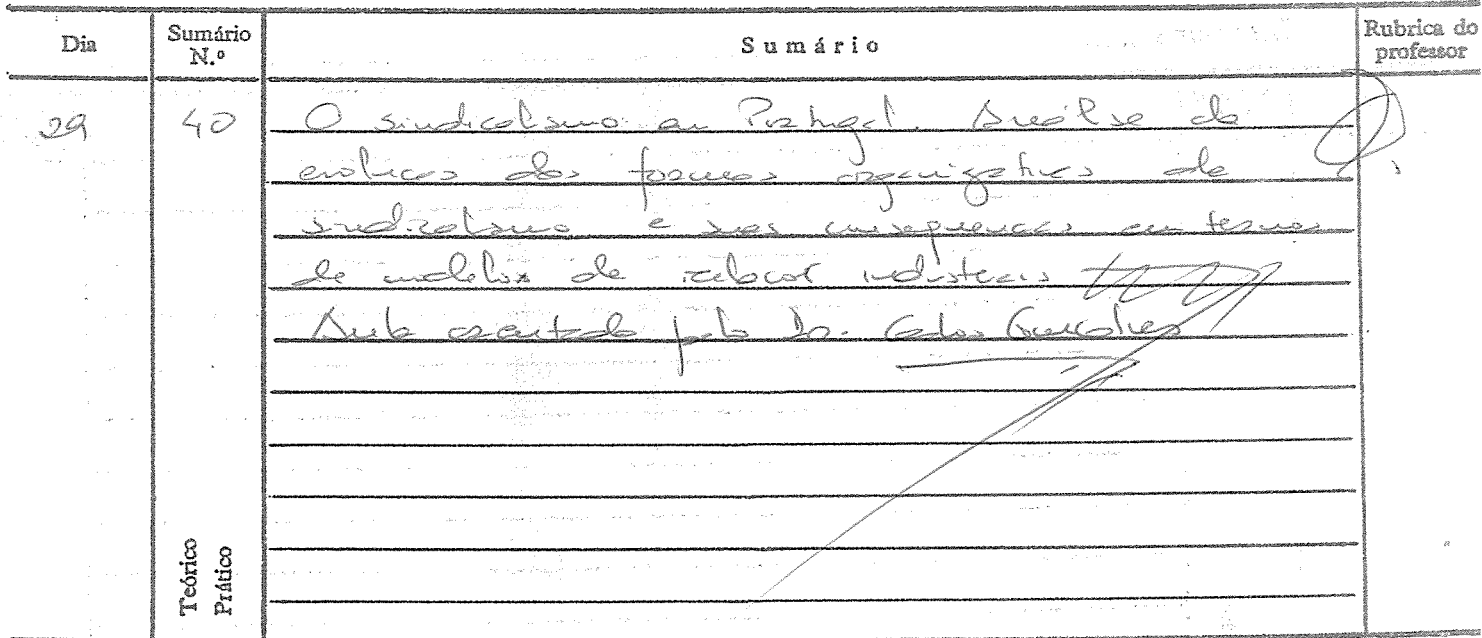 Dia Sumário N.º Sumário Rubrica do professor
29 40 O sindicalismo em Portugal. Análise da
evolução das formas organizativas de
sindicalismo e suas consequências em termos
de modelos de relações industriais
Aula orientada pelo Dr. Carlos Gonçalves
Teórico
Prático